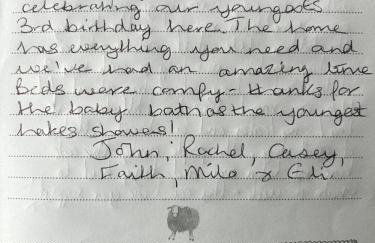 celebrating our youngest's
3rd birthday here. The home
has everything you need and
we've had an amazing time
Beds were comfy - thanks for
the baby bath as the youngest
hates showers!
John, Rachel, Casey,
Faith, Milo & Eli